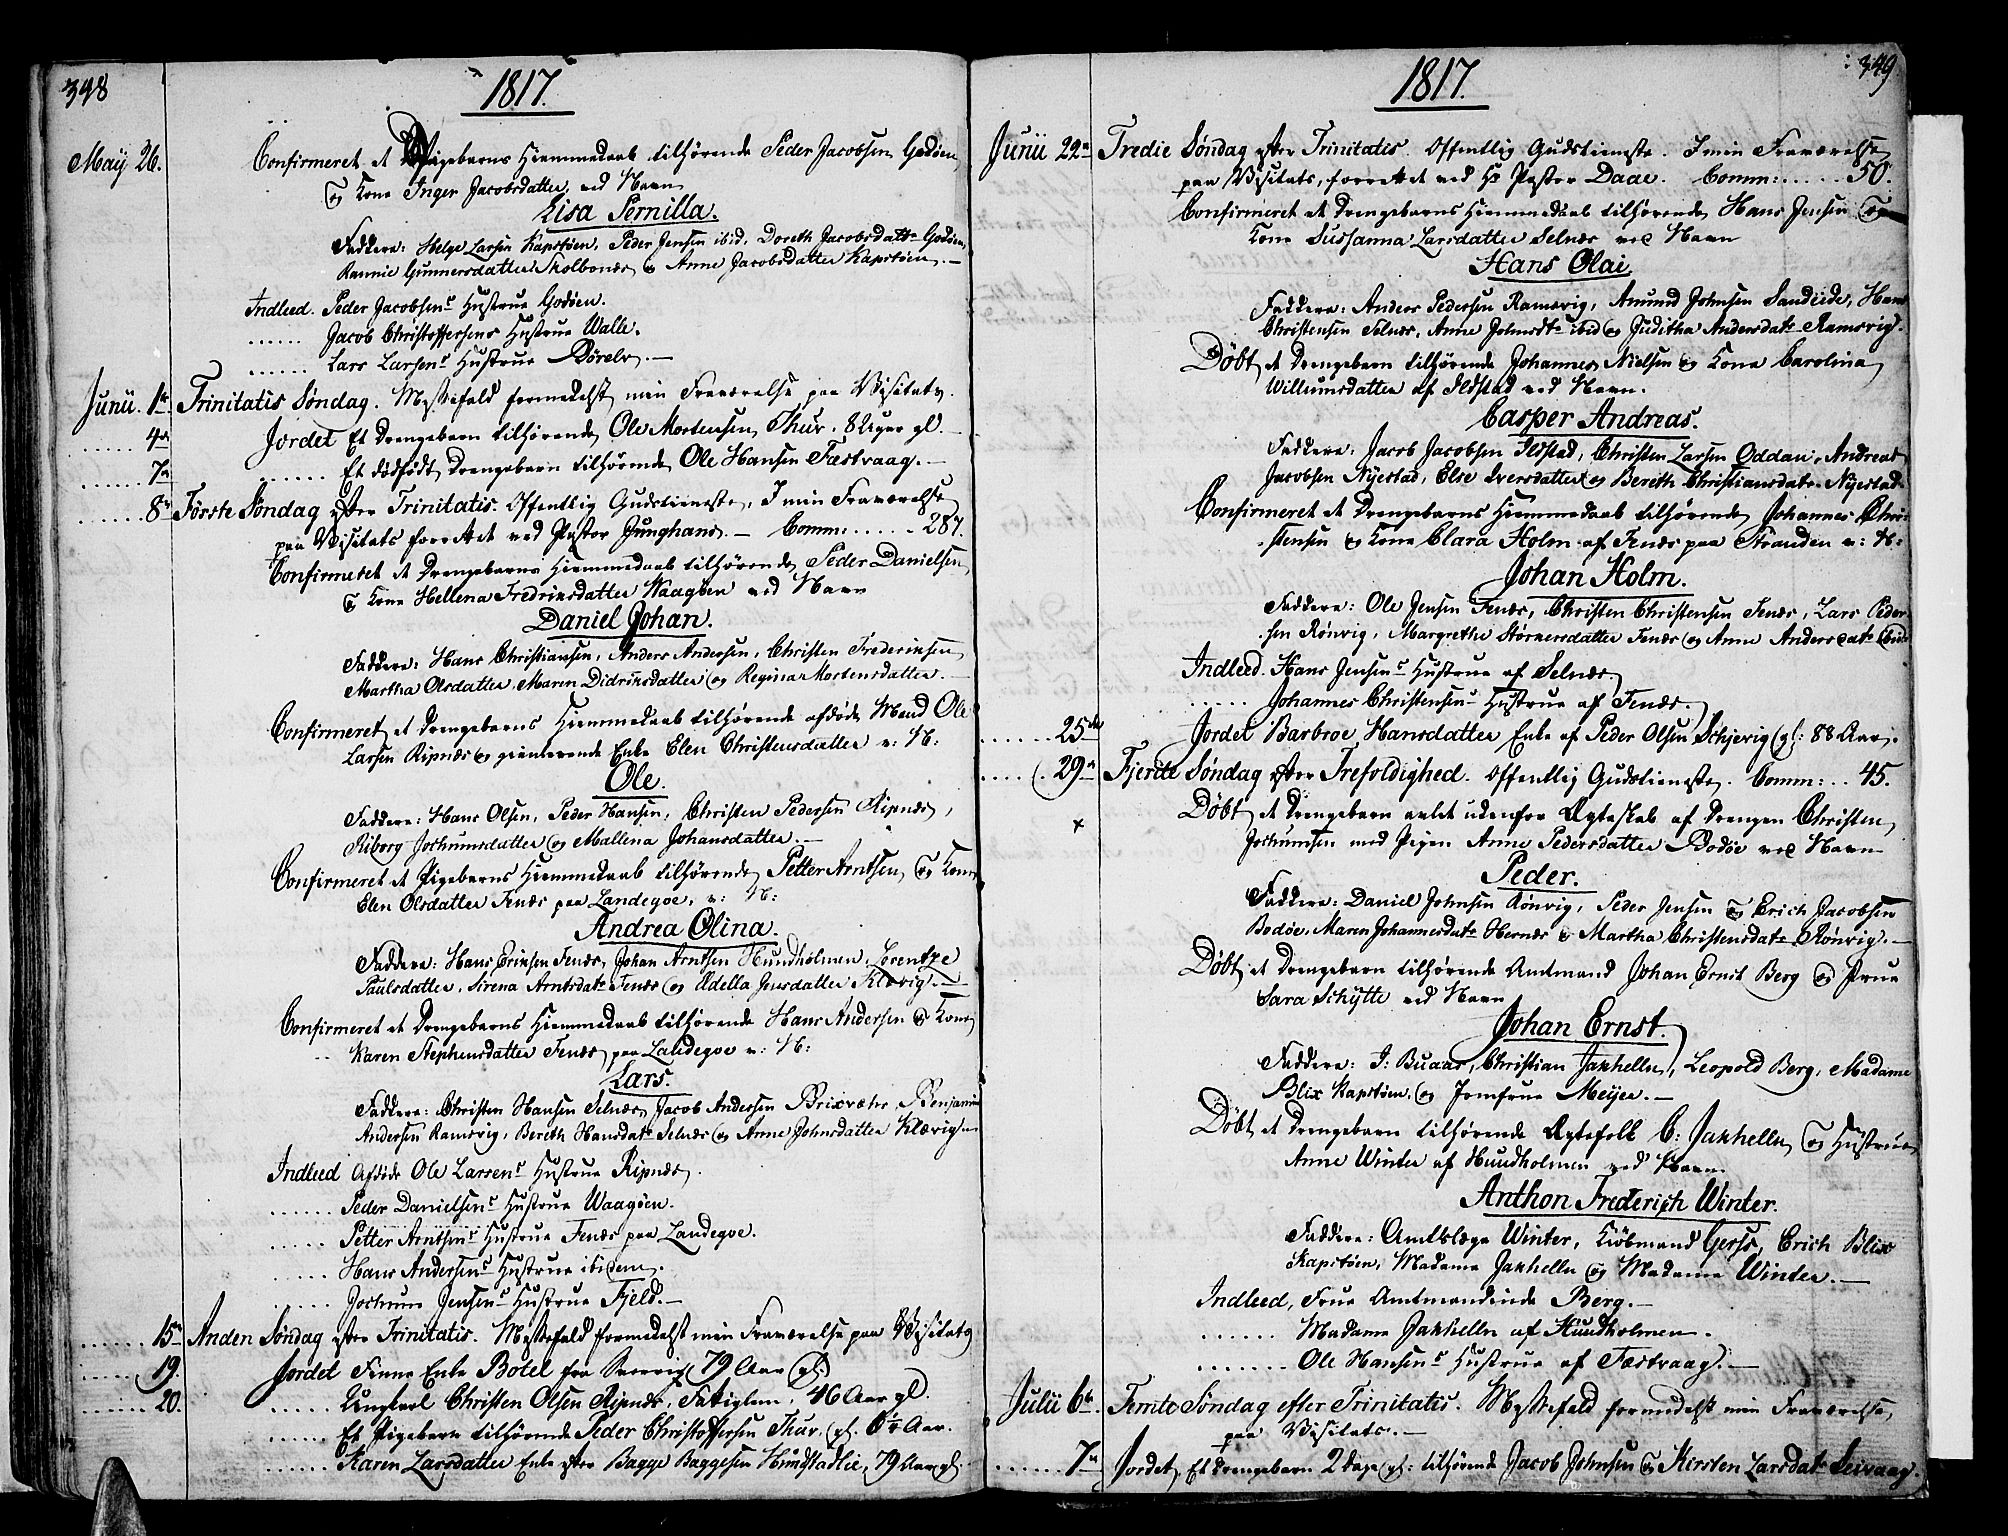 398
1817.
Maij 26. Confirmeret et Pigebarns Hiemmedaab tilhørende Peder Jacobsen Godøen
og Kone Inger Jacobsdatter, ved Navn
Lisa Pernilla.
Faddere: Helge Larsen Kapstøen, Peder Jensen ibid, Doreth Jacobsdattr Godøen,
Rannie Gunnersdatter Skolbones og Anne Jacobsdatter Kapstøen.—
Indleed. Peder Jacobsens Hustrue Godøen.
...... Jacob Christoffersens Hustrue Walle.
...... Lars Larsens Hustrue Børelv.—
Junii. 1te Trinitatis Søndag. Messefald formedelst min Fraværelse paa Visitats.
...... 4de Jordet Et Drengebarn tilhørende Ole Mortensen Thur. 8 Uger gl.
...... 7de ...... Et dødfødt Drengebarn tilhørende Ole Hansen Fæstvaag.—
...... 8de Første Søndag efter Trinitatis. Offentlig Gudstieneste, I min Fraværelse
paa Visitats forrettet ved Pastor Junghans.— Comm: ..... 287.
Confirmeret et Drengebarns Hiemmedaab tilhørende Peder Danielsen
og Kone Hellena Fredriksdatter Waagøen ved Navn
Daniel Johan.
Faddere: Hans Christiansen, Anders Andersen, Christen Frederiksen,
Martha Olsdatter, Maren Didriksdatter og Regina Mortensdatter.—
Confirmeret et Drengebarns Hiemmedaab tilhørende afdøde Mand Ole
Larsen Ripnes og Enke Elen Christensdatter v: N:
Ole.
Faddere: Hans Olsen, Peder Hansen, Christen Pedersen Ripnes,
Siborg Jochumsdatter og Mallena Johansdatter.—
Confirmeret et Pigebarns Hiemmedaab tilhørende Petter Arntsen og Kone
Elen Olsdatter Fenes paa Landegoe, v: N:
Andrea Olina.
Faddere: Hans Eriksen Fenes, Johan Arntsen Hundholmen, Lorentze
Paulsdatter, Sirena Arntsdatr Fenes og Adella Jensdatter Kleevig.—
Confirmeret et Drengebarns Hiemmedaab tilhørende Hans Andersen og Kone
Karen Stephensdatter Fenes paa Landegoe v: N:
Lars.
Faddere: Christen Hansen Selnes, Jacob Andersen Brixvær, Benjamin
Andersen Ramsvig, Bereth Hansdatr Selnes og Anne Johnsdatter Klævig.—
Indleed Afdøde Ole Larsens Hustrue Ripnes.
...... Peder Danielsens Hustrue Waagøen.
...... Petter Arntsens Hustrue Fenes paa Landegoe.
...... Hans Andersens Hustrue ibidem.
...... Jochum Jensens Hustrue Fjeld.—
...... 15de Anden Søndag efter Trinitatis. Messefald formedelst min Fraværelse paa Visitats
...... 19. Jordet Finne Enke Botel fra 79 Aar gl.
...... 20. ...... Ungkarl Christen Olsen Ripnes, Fattiglem, 46 Aar gl.
...... Et Pigebarn tilhørende Peder Christoffersen Thur, gl. 6½ Aar.
...... Karen Larsdatter Enke efter Bagge Baggesen Hundstadlie, 79 Aar gl.
349
1817.
Junii 22de Tredie Søndag efter Trinitatis. Offentlig Gudstieneste. I min Fraværelse
paa Visitats, forrettet ved Hr Pastor Daae. Comm: ...... 50.
Confirmeret et Drengebarns Hiemmedaab tilhørende Hans Jensen og
Kone Sussanna Larsdatter Selnes ved Navn
Hans Olai.
Faddere: Anders Pedersen Ramsvig, Amund Johnsen Sandeide, Hans
Christensen Selnes, Anne Johnsdtr ibid og Juditha Andersdatr Ramsvig.
Døbt et Drengebarn tilhørende Johannes Nielsen og Kone Carolina
Willumsdatter af Ildstad ved Navn.
Casper Andreas.
Faddere: Jacob Jacobsen Ildstad, Christen Larsen Oddan, Andreas
Jacobsen Nyestad, Else Iversdatter og Bereth Christiansdatr Nyestad.
Confirmeret et Drengebarns Hiemmedaab tilhørende Johannes Chri-
stensen og Kone Clara Holm af Fenes paa Stranden v: N:
Johan Holm.
Faddere: Ole Jensen Fenes, Christen Christensen Fenes, Lars Peder-
sen Rønvig, Margrethe Størkersdatter Fenes og Anne Andersdatr ibid.
Indleed. Hans Jensens Hustrue af Selnes.
...... Johannes Christensens Hustrue af Fenes.
...... 25de Jordet Barbroe Hansdatter Enke af Peder Olsen Schjevig gl: 88 Aar.
...... 29de Fjerde Søndag efter Trefoldighed. Offentlig Gudstieneste. Comm: .. 45.
× Døbt et Drengebarn avlet udenfor Ægteskab af Drengen Christen
Jochumsen med Pigen Anne Pedersdatter Bodøe ved Navn
Peder.
Faddere: Daniel Johnsen Rønvig, Peder Jensen og Erich Jacobsen
Bodøe, Maren Johannesdatr Hernes og Martha Christensdatr Rønvig.—
Døbt et Drengebarn tilhørende Amtmand Johan Ernst Berg og Frue
Sara Schytte ved Navn
Johan Ernst.
Faddere: J: Buaas, Christian Jakhelln, Leopold Berg, Madame
Blix Kapstøen, og Jomfrue Meyer.—
Døbt et Drengebarn tilhørende Ægtefolk C: Jakhelln og Hustrue
Anne Winter af Hundholmen ved Navn
Anthon Frederich Winter.
Faddere: Amtslæge Winter, Kiøbmand Gerss, Erich Blix
Kapstøen, Madame Jakhelln og Madame Winter.—
Indleed, Frue Amtmandinde Berg.—
...... Madame Jakhelln af Hundholmen.
...... Ole Hansens Hustrue af Fæstvaag.—
Julii 6te Femte Søndag efter Trinitatis. Messefald formedelst min Fraværelse
paa Visitats.—
...... 7de Jordet, Et Drengebarn 2 dage gl: tilhørende Jacob Johnsen og Kirsten Larsdatr Seivaag.